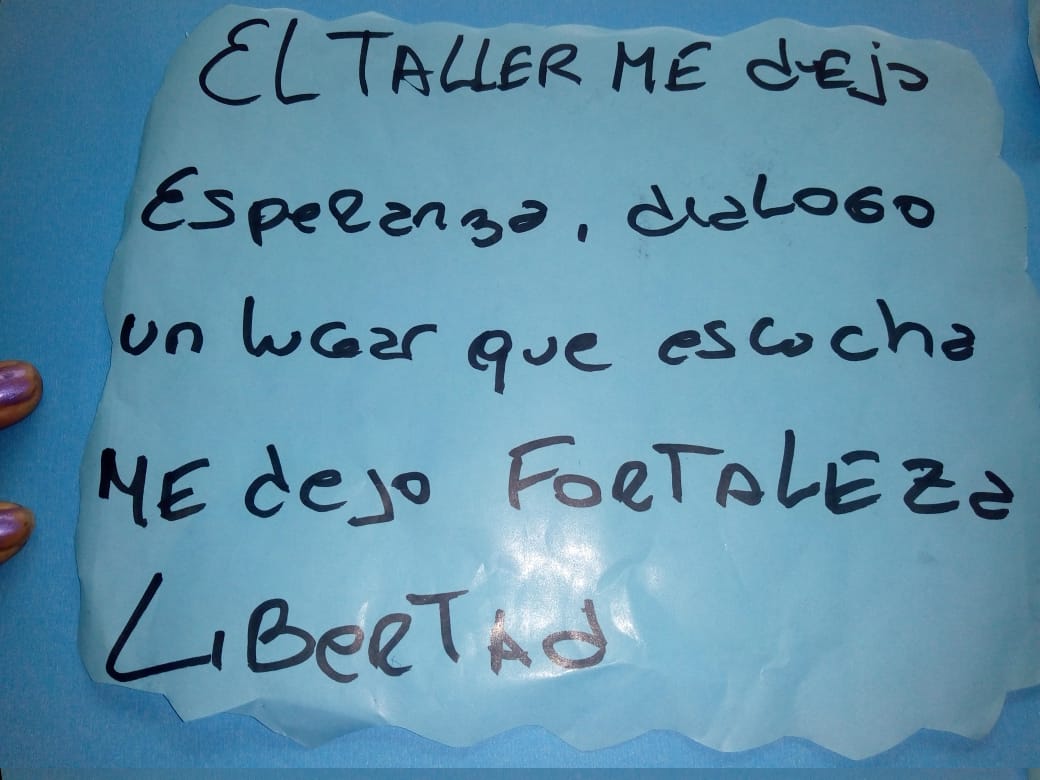 EL TALLER ME dEJo
Esperanza, diaLOGO
un lugar que escocha
ME dejo FORTALEZa
LiBeRTAd